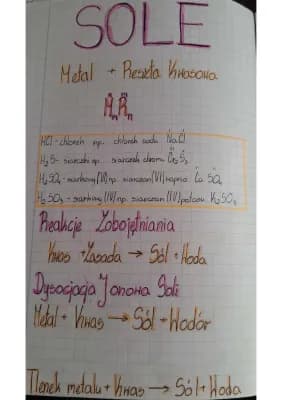 SOLE
Metal + Reszta Kwasowa
HCl - chlorek np. chlorek sodu NaCl
H₂S - siarczki np. siarczek chromu Cr₂S₃
H₂SO₃ - siarkowy (IV) np. siarczan (IV) wapnia Ca SO₃
H₂SO₄ - siarkowy (VI) np. siarczan (VI) potasu K₂SO₄
Reakcje Zobojętniania
Kwas + Zasada → Sól + Woda
Dysocjacja Jonowa Soli
Metal + Kwas → Sól + Wodór
Tlenek metalu + Kwas → Sól + Woda